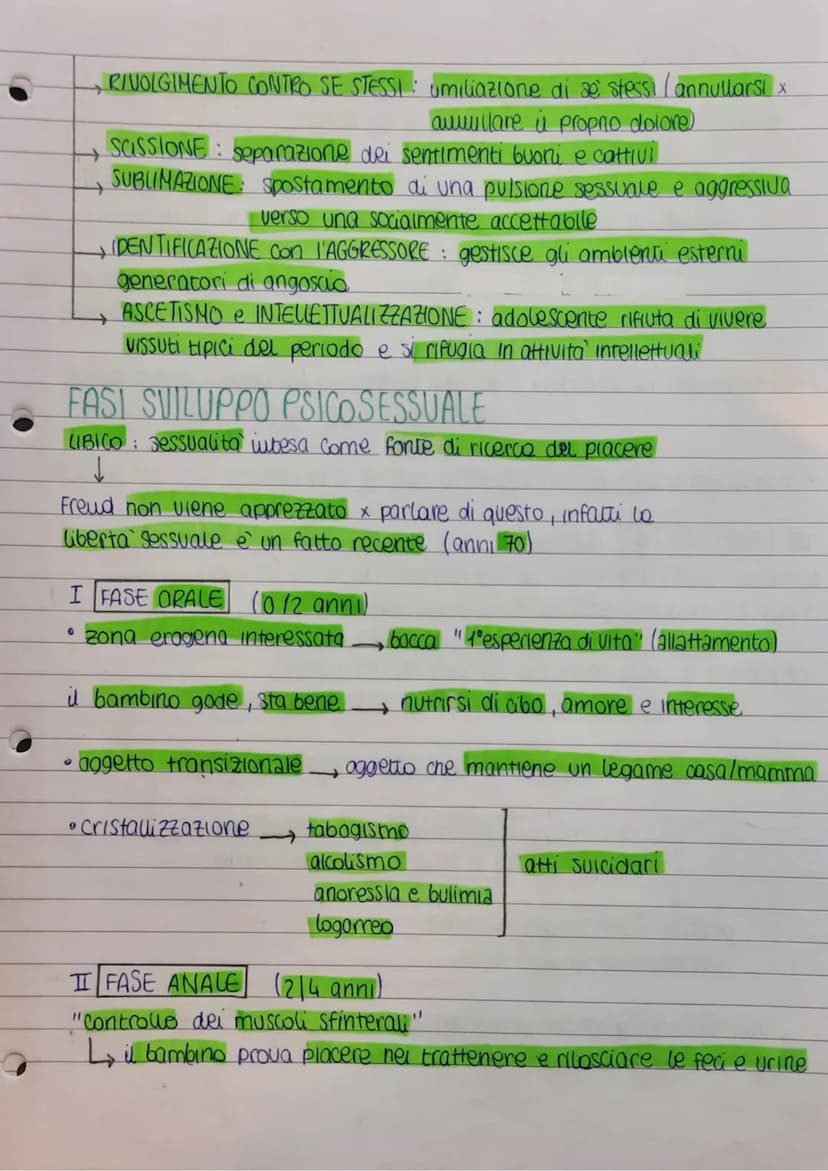 → RIVOLGIMENTO CONTRO SE STESSI : umiliazione di sé stessi (annullarsi x
annullare il proprio dolore)
→ SCISSIONE : separazione dei sentimenti buoni e cattivi
→ SUBLIMAZIONE : spostamento di una pulsione sessuale e aggressiva
verso una socialmente accettabile
→ IDENTIFICAZIONE con l'AGGRESSORE : gestisce gli ambienti esterni
generatori di angoscia
→ ASCETISMO e INTELLETTUALIZZAZIONE : adolescente rifiuta di vivere
vissuti tipici del periodo e si rifugia in attività intellettuali
FASI SVILUPPO PSICOSESSUALE
LIBICO : sessualità intesa come fonte di ricerca del piacere
↓
Freud non viene apprezzato x parlare di questo, infatti la
libertà sessuale è un fatto recente (anni 70)
I FASE ORALE (0/2 anni)
• zona erogena interessata → bocca "1°esperienza di vita" (allattamento)
il bambino gode, sta bene → nutrirsi di cibo, amore e interesse
• oggetto transizionale → oggetto che mantiene un legame casa/mamma
• cristallizzazione → tabagismo
alcolismo
atti suicidari
anoressia e bulimia
logorrea
II FASE ANALE (2/4 anni)
"controllo dei muscoli sfinterali"
↳ il bambino prova piacere nel trattenere e rilasciare le feci e urine